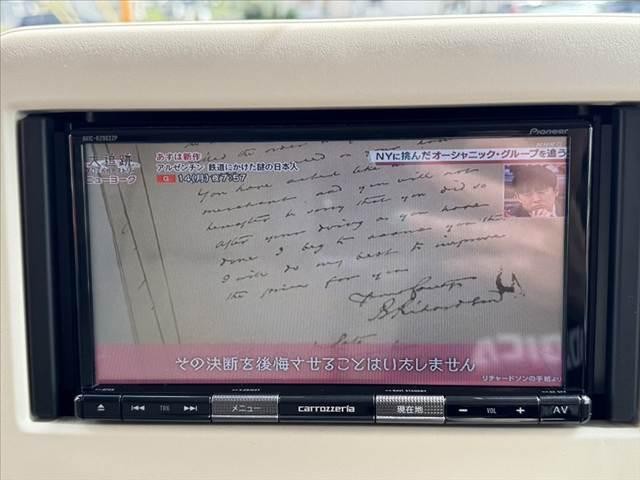 AVIC-RZ902ZP
Pioneer
大追跡
ニューヨーク
あすほ新作
アルゼンチン 鉄道にかけた謎の日本人
G 14(月) 夜7:57
NHK G
NYに挑んだオーシャニック・グループを追う
You have acted like a
merchant and you will not
hereafter be sorry that you did so
after your doing as you have
done I beg to assure you that
I will do my best to improve
the price for you
その決断を後悔させることはいたしません
リチャードソンの手紙より
TRK
メニュー
carrozzeria
現在地
− VOL +
AV